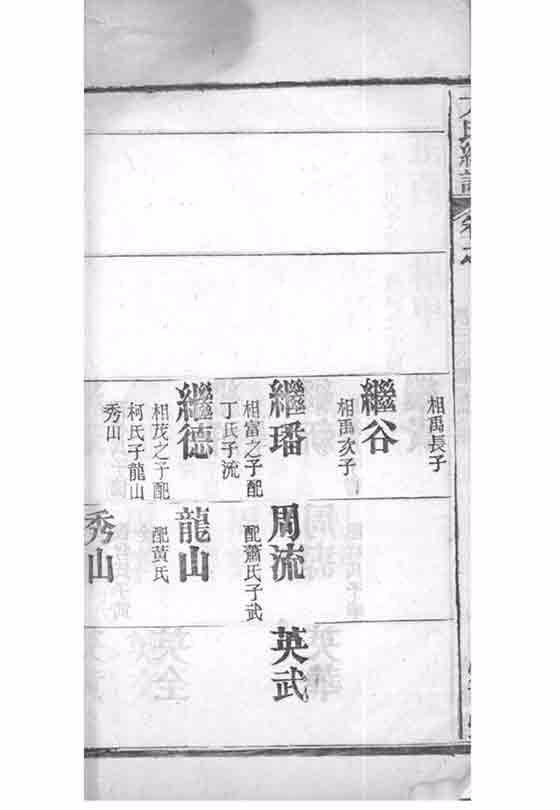 氏
卷之
相禹長子
繼谷
相禹次子
繼璠
相富之子配
丁氏子流
繼德
相茂之子配
柯氏子龍山
秀山
周流
配蕭氏子武
龍山
配黄氏
秀山
英武